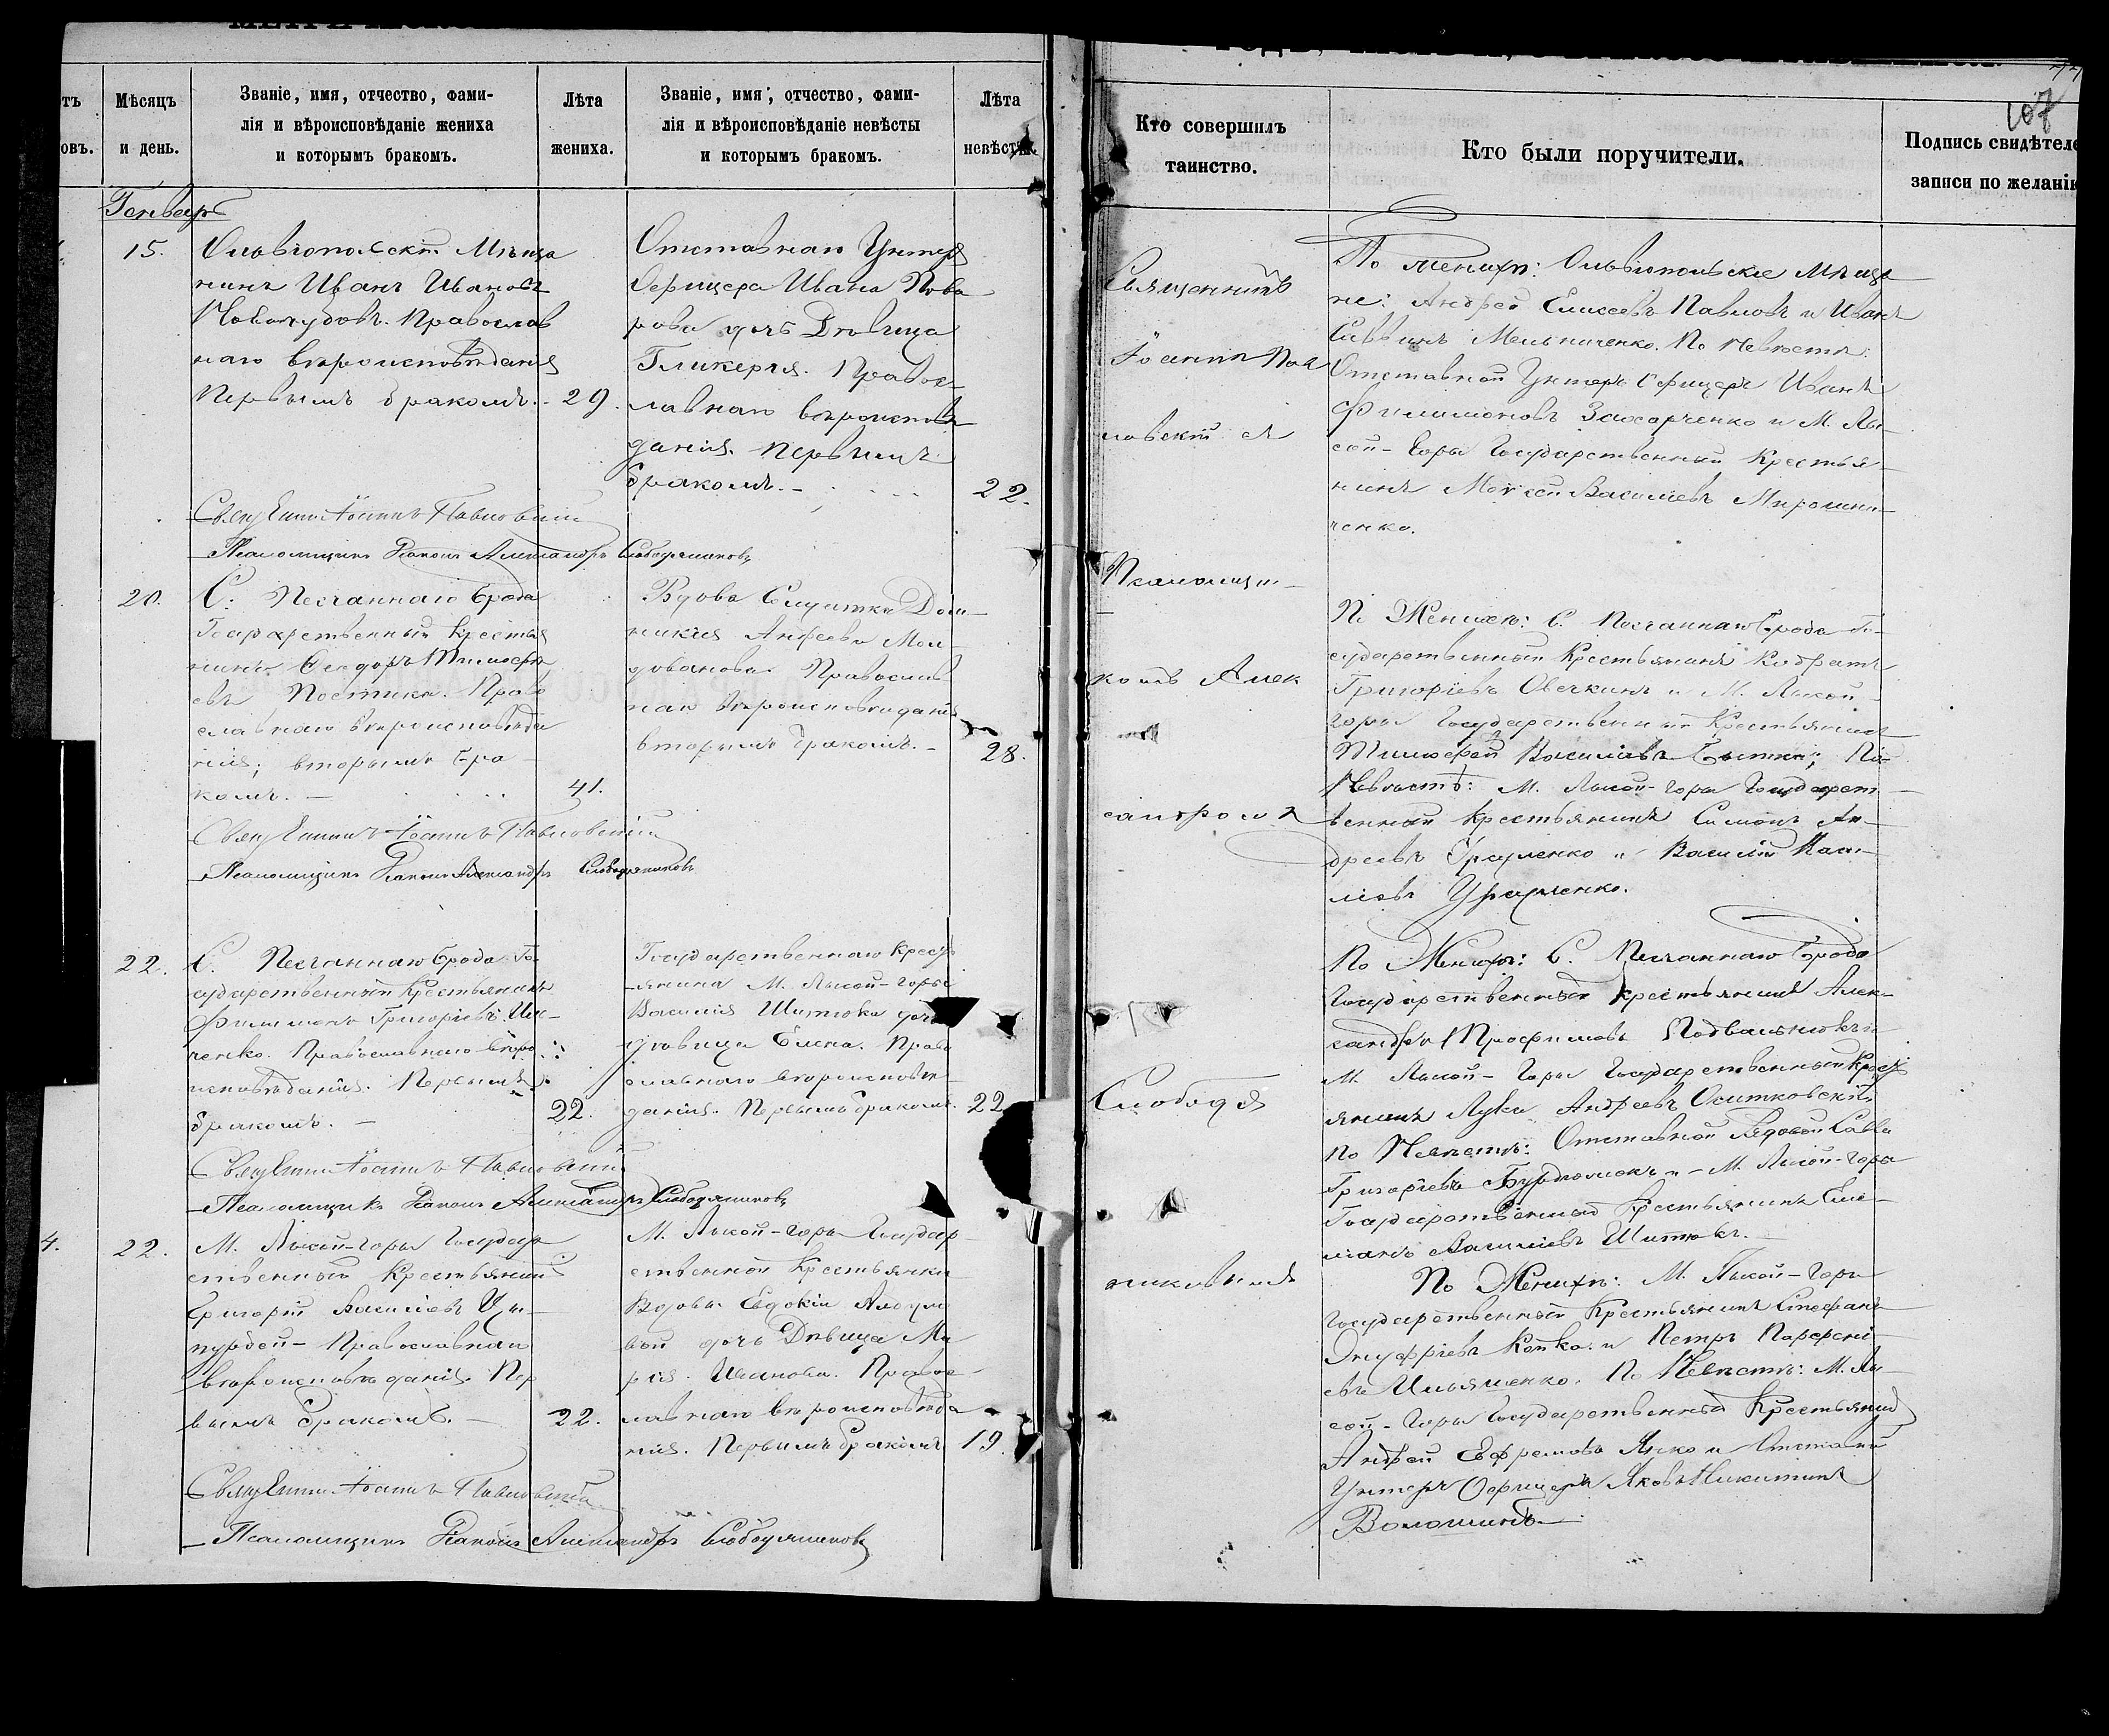 Мѣсяцъ
и день.
Званіе, имя, отчество, фами-
лія и вѣроисповѣданіе жениха
и которымъ бракомъ.
Лѣта
жениха.
Званіе, имя, отчество, фами-
лія и вѣроисповѣданіе невѣсты
и которымъ бракомъ.
Лѣта
невѣсты.
Генварь
15.
Ольвіопольскій Мѣща
нинъ Иванъ Ивановъ
Православ
наго вѣроисповѣданія
Первымъ бракомъ. 29.
Отставнаго Унтеръ
Офицера Ивана Пова
рова дочь Дѣвица
Гликерія. Правос
лавнаго вѣроисповѣ
данія. Первымъ
бракомъ. 22.
Священникъ Іоаннъ Павловскій
Псаломщикъ Александръ Слободяниковъ
20.
С. Песчаннаго Брода
Государственный Крестья
нинъ Ѳеодоръ Тимоѳе
евъ Постика. Право
славнаго вѣроисповѣда
нія; вторымъ бра
комъ. 41.
Вдова Солдатка Дом
никія Андреева Мол
дованова. Православ
наго вѣроисповѣданія
вторымъ бракомъ. 28.
Священникъ Іоаннъ Павловскій
Псаломщикъ Александръ Слободяниковъ
22.
С. Песчаннаго Брода Го
сударственный Крестьянинъ
Филимонъ Григорьевъ
ченко. Православнаго вѣро
исповѣданія. Первымъ
бракомъ. 22.
Государственнаго Крест
янина М. Лысой-горы
Василія Шитюка дочь
дѣвица Елена. Право
славнаго вѣроисповѣ
данія. Первымъ бракомъ. 22
Священникъ Іоаннъ Павловскій
Псаломщикъ Александръ Слободяниковъ
4.
22.
М. Лысой-горы Государ
ственный Крестьянинъ
Григорій Василіевъ
Православнаго
вѣроисповѣданія. Пер
вымъ бракомъ. 22.
М. Лысой-горы Государ
ственной Крестьянки
Вдовы Евдокіи
вой дочь Дѣвица Ма
рія Иванова. Правос
лавнаго вѣроисповѣда
нія. Первымъ бракомъ 19.
Священникъ Іоаннъ Павловскій
Псаломщикъ Александръ Слободяниковъ
107
Кто совершилъ
таинство.
Кто были поручители.
Подпись свидѣтеле
записи по желанію
Священникъ
Іоаннъ Пав
ловскій съ
Псаломщи
комъ Алек
сандромъ
Слободя
никовымъ
По женихѣ: Ольвіопольскіе Мѣща
не: Андрей Елисеевъ Павловъ и Иванъ
Саввинъ Мельниченко. По Невѣстѣ:
Отставной Унтеръ Офицеръ Иванъ
Филимоновъ Захарченко и М. Лы
сой-Горы Государственный Крестья
нинъ Мойсей Василіевъ Мирошни
ченко.
По Женихѣ: С. Песчаннаго Брода Го
сударственный Крестьянинъ Кодратъ
Григоріевъ Овечкинъ и М. Лысой
горы Государственный Крестьянинъ
Тимофей Василіевъ По
Невѣстѣ: М. Лысой-горы Государст
венный Крестьянинъ Симонъ Ан
дреевъ Гриценко и Василій
По Женихѣ: С. Песчаннаго Брода
Государственный Крестьянинъ Алек
сандръ Трофимовъ и
М. Лысой-Горы Государственный Крест
янинъ Лука Андреевъ Оситковскій
по Невѣстѣ: Отставной Рядовой Савва
Григоріевъ и М. Лысой-Горы
Государственный Крестьянинъ Еме
ліанъ Василіевъ Шитюкъ.
По Женихѣ: М. Лысой-Горы
Государственный Крестьянинъ Стефанъ
Онуфріевъ и Петръ Парфені
евъ Ильяшенко. По Невѣстѣ: М. Лы
сой-Горы Государственный Крестьянинъ
Андрей Ефремовъ Яцко и Отставной
Унтеръ Офицеръ Яковъ Никитинъ
Волошинъ.